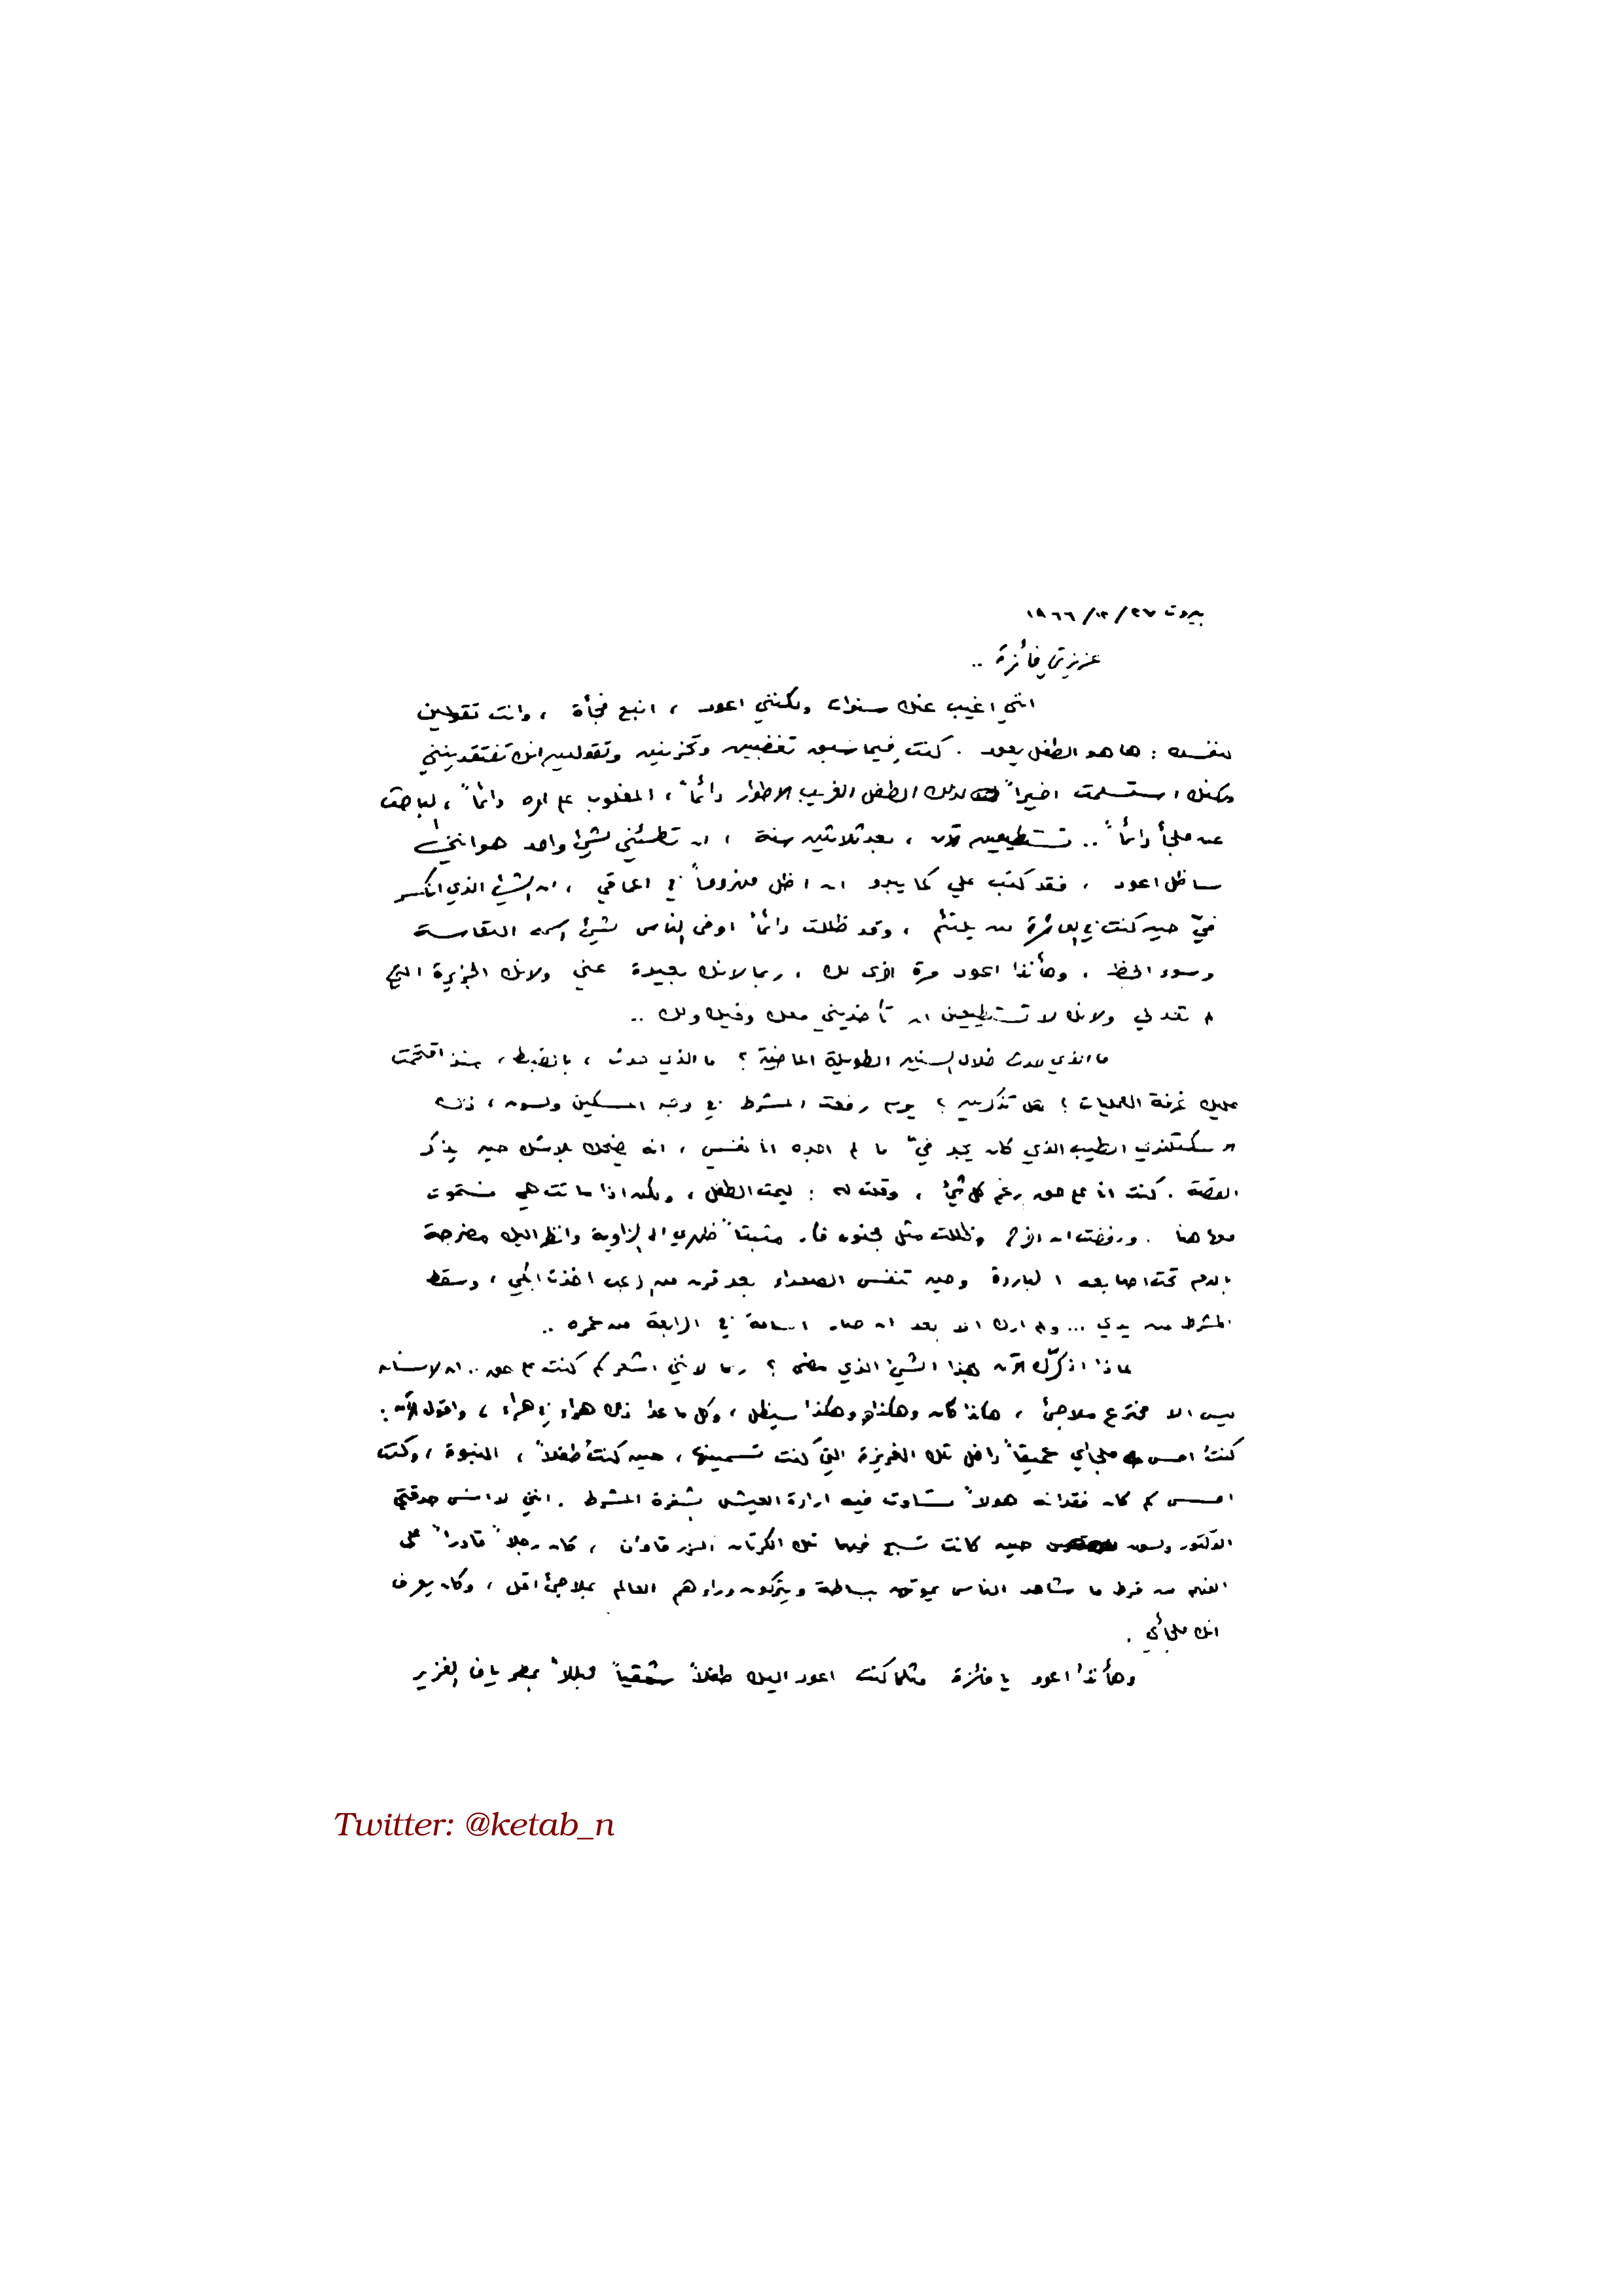 بيروت ٢٧/١٢/١٩٦٦
عزيزتي فائزة ..
انني اغيب عنك سنوات ولكنني اعود ، انبع فجأة ، وانت تقولين
لنفسك : ها هو الطفل يعود . كنت فيما سبق تغضبين وتحزنين وتقولين انك تفتقدينني
ولكنك استسلمت اخيراً لذلك الطفل الغريب الاطوار دائماً ، المغلوب على امره دائماً ، الباحث
عن ملجأ دائماً .. تستطيعين الآن ، بعد ثلاثين سنة ، ان تطمئني لشيئ واحد هو انني
ساظل اعود ، فقد كتب علي كما يبدو ان اظل مهزوماً في اعماقي ، ان الشيئ الذي انكسر
فيّ حين كنت في العاشرة لن يلتئم ، وقد ظللت دائماً ارفض الناس لشيئ اسمه التعاسة
وسوء الحظ ، وهأنذا اعود مرة اخرى لك ، ربما لانك بعيدة عني ولانك الجزيرة التي
لم تعد لي ولانك لا تستطيعين ان تأخذيني معك وفيك ولك ..
ما الذي حدث خلال السنين الطويلة الماضية ؟ ما الذي حدث ، بالضبط ، منذ اقتحمت
عليك غرفة العمليات ؟ هل تذكرين ؟ يوم رفعت المشرط في وجه المسكين ولسون ، ذلك
الاسكتلندي الطيب الذي كان يجد فيّ ما لم اجده انا نفسي ، انه يضحك بلا شك حين يذكر
القصة . كنت انا على حق رغم كل شيئ ، وقلت له : ليمت الطفل ، ولكن اذا ماتت هي فستموت
معها هنا . ورفضت ان اخرج وظللت مثل مجنون فار مثبتاً ظهري الى الزاوية وانظر اليك مضرجة
بالدم تحت اصابعه الباردة وحين تنفس الصعداء بعد قرن من الرعب اخذت ابكي ، وسقط
المشرط من يدي ... ولم ارك الا بعد ان صار اسامة في الرابعة من عمره ..
لماذا اذكّرك الآن بهذا الشيئ الذي مضى ؟ ربما لانني اشعر كم كنت على حق .. ان الانسان
ليس الا مخترع ملاجئ ، هكذا كان وهكذا وهكذا سيظل ، وكل ما عدا ذلك هراء في هراء ، واقول الآن :
كنتُ احس ملجأي عميقاً داخل تلك الغريزة التي كنت تسمينها ، حين كنتُ طفلاً ، النبوة ، وكنت
احس كم كان فقدانه هولاً تساوت فيه ارادة العيش بشفرة المشرط . انني لا انسى حدقتي
الدكتور ولسون حين كانت تسبح فيهما تلك الكرتان الزرقاوان ، كان رجلاً قادراً على
الفهم من فرط ما شاهد الناس يموتون ببساطة ويتركون وراءهم العالم بملاجئ اقل ، وكان يعرف
انك ملجأي .
وهأنذا اعود يا فائزة مثلما كنت اعود اليك طفلاً شقياً مبللاً بمطر يافا الغزير
Twitter: @ketab_n